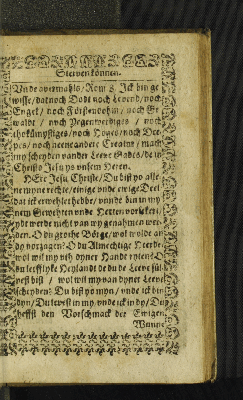 Sterven können.
Unde avermahls / Rom 8. Ick bin ge
wisse / dat noch Dodt noch Levend / noch
Engel / noch Förstendohm / noch Ge
waldt / noch Jegenwerdiges / noch
thokümpstiges / noch Hoges / noch Dee
pes / noch nene andere Creatur / mach
my scheyden van der Leeve Gades / de in
Christo Jesu ys unsem Heren.
HErr Jesu Christe / Du bist yo alle
ne myne rechte / einige unde ewige Deel
dat ick erwehlet hebbe / unde bin in my
nem Gewehten unde Herten
yd werde nicht van my genahmen wer
den. O du grothe Börge / wol wolde an
dy vorzagen? O du Almechtige Heerde
wol wil my uth dyner Hande ryten? O
du leefflyke Heylandt de du de Leeve sül
vest bist / wol wil my van dyner Leeve
scheyden? Du bist yo myn / unde ick bin
dyn / Du levest in my / unde ick in dy / Du
heffst den Vorschmack der Ewigen
Wunne